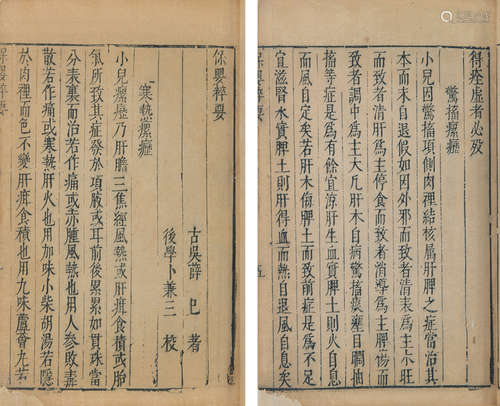 得痊虛者必歿
驚搐瘰癧
小兒因驚搐項側肉裡結核属肝脾之症當治其
本而末自退假如因外邪而致者清表為主六旺
而致者清肝為主停食而致者消導為主脾傷而
致者調中為主大凡肝木自病驚搐痰壅目瞤抽
搐等症是為有餘宜涼肝生血則火自息
而風自定矣若肝木侮脾土而致前症是為不足
宜滋腎水實脾土則肝得血而熱自退風自息矣
保嬰粹要
保嬰粹要
古吳薛己著
後學卜兼三校
寒熱瘰癧
小兒瘰癧乃肝膽三焦經風熱或肝疳食積或胎
氣所致其症發於項腋或耳前後累累如貫珠當
分表裏而治若作痛或赤腫風熱也用人參敗毒
散若作痛或寒熱肝火也用加味小柴胡湯若隱
於肉裡而色不變肝疳食積也用九味蘆薈丸若
保嬰粹要